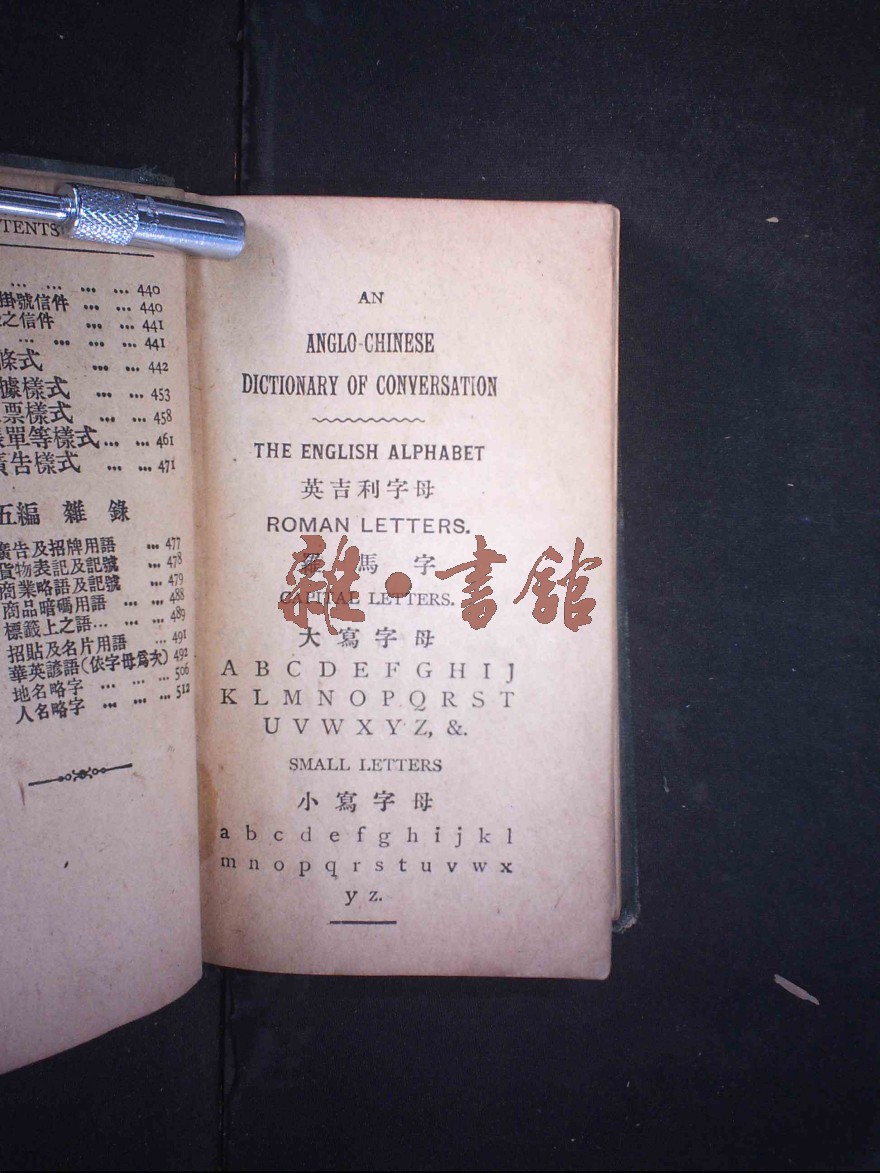 TENTS
... ... ... ... 440
掛號信件 ... ... 440
之信件 ... ... 441
... ... ... ... 441
條式 ... ... 442
據樣式 ... ... 453
票樣式 ... ... 458
單等樣式 ... ... 461
廣告樣式 ... ... 471
五編 雜 錄
廣告及招牌用語 ... 477
貨物表記及記號 ... 478
商業略語及記號 ... 479
商品暗碼用語 ... ... 488
標籤上之語 ... ... ... 489
招貼及名片用語 ... 491
華英諺語(依字母爲次) 492
地名略字 ... ... ... 506
人名略字 ... ... ... 512
AN
ANGLO-CHINESE
DICTIONARY OF CONVERSATION
THE ENGLISH ALPHABET
英吉利字母
ROMAN LETTERS.
羅馬字
CAPITAL LETTERS.
大寫字母
A B C D E F G H I J
K L M N O P Q R S T
U V W X Y Z, &.
SMALL LETTERS
小寫字母
a b c d e f g h i j k l
m n o p q r s t u v w x
y z.
雜·書館